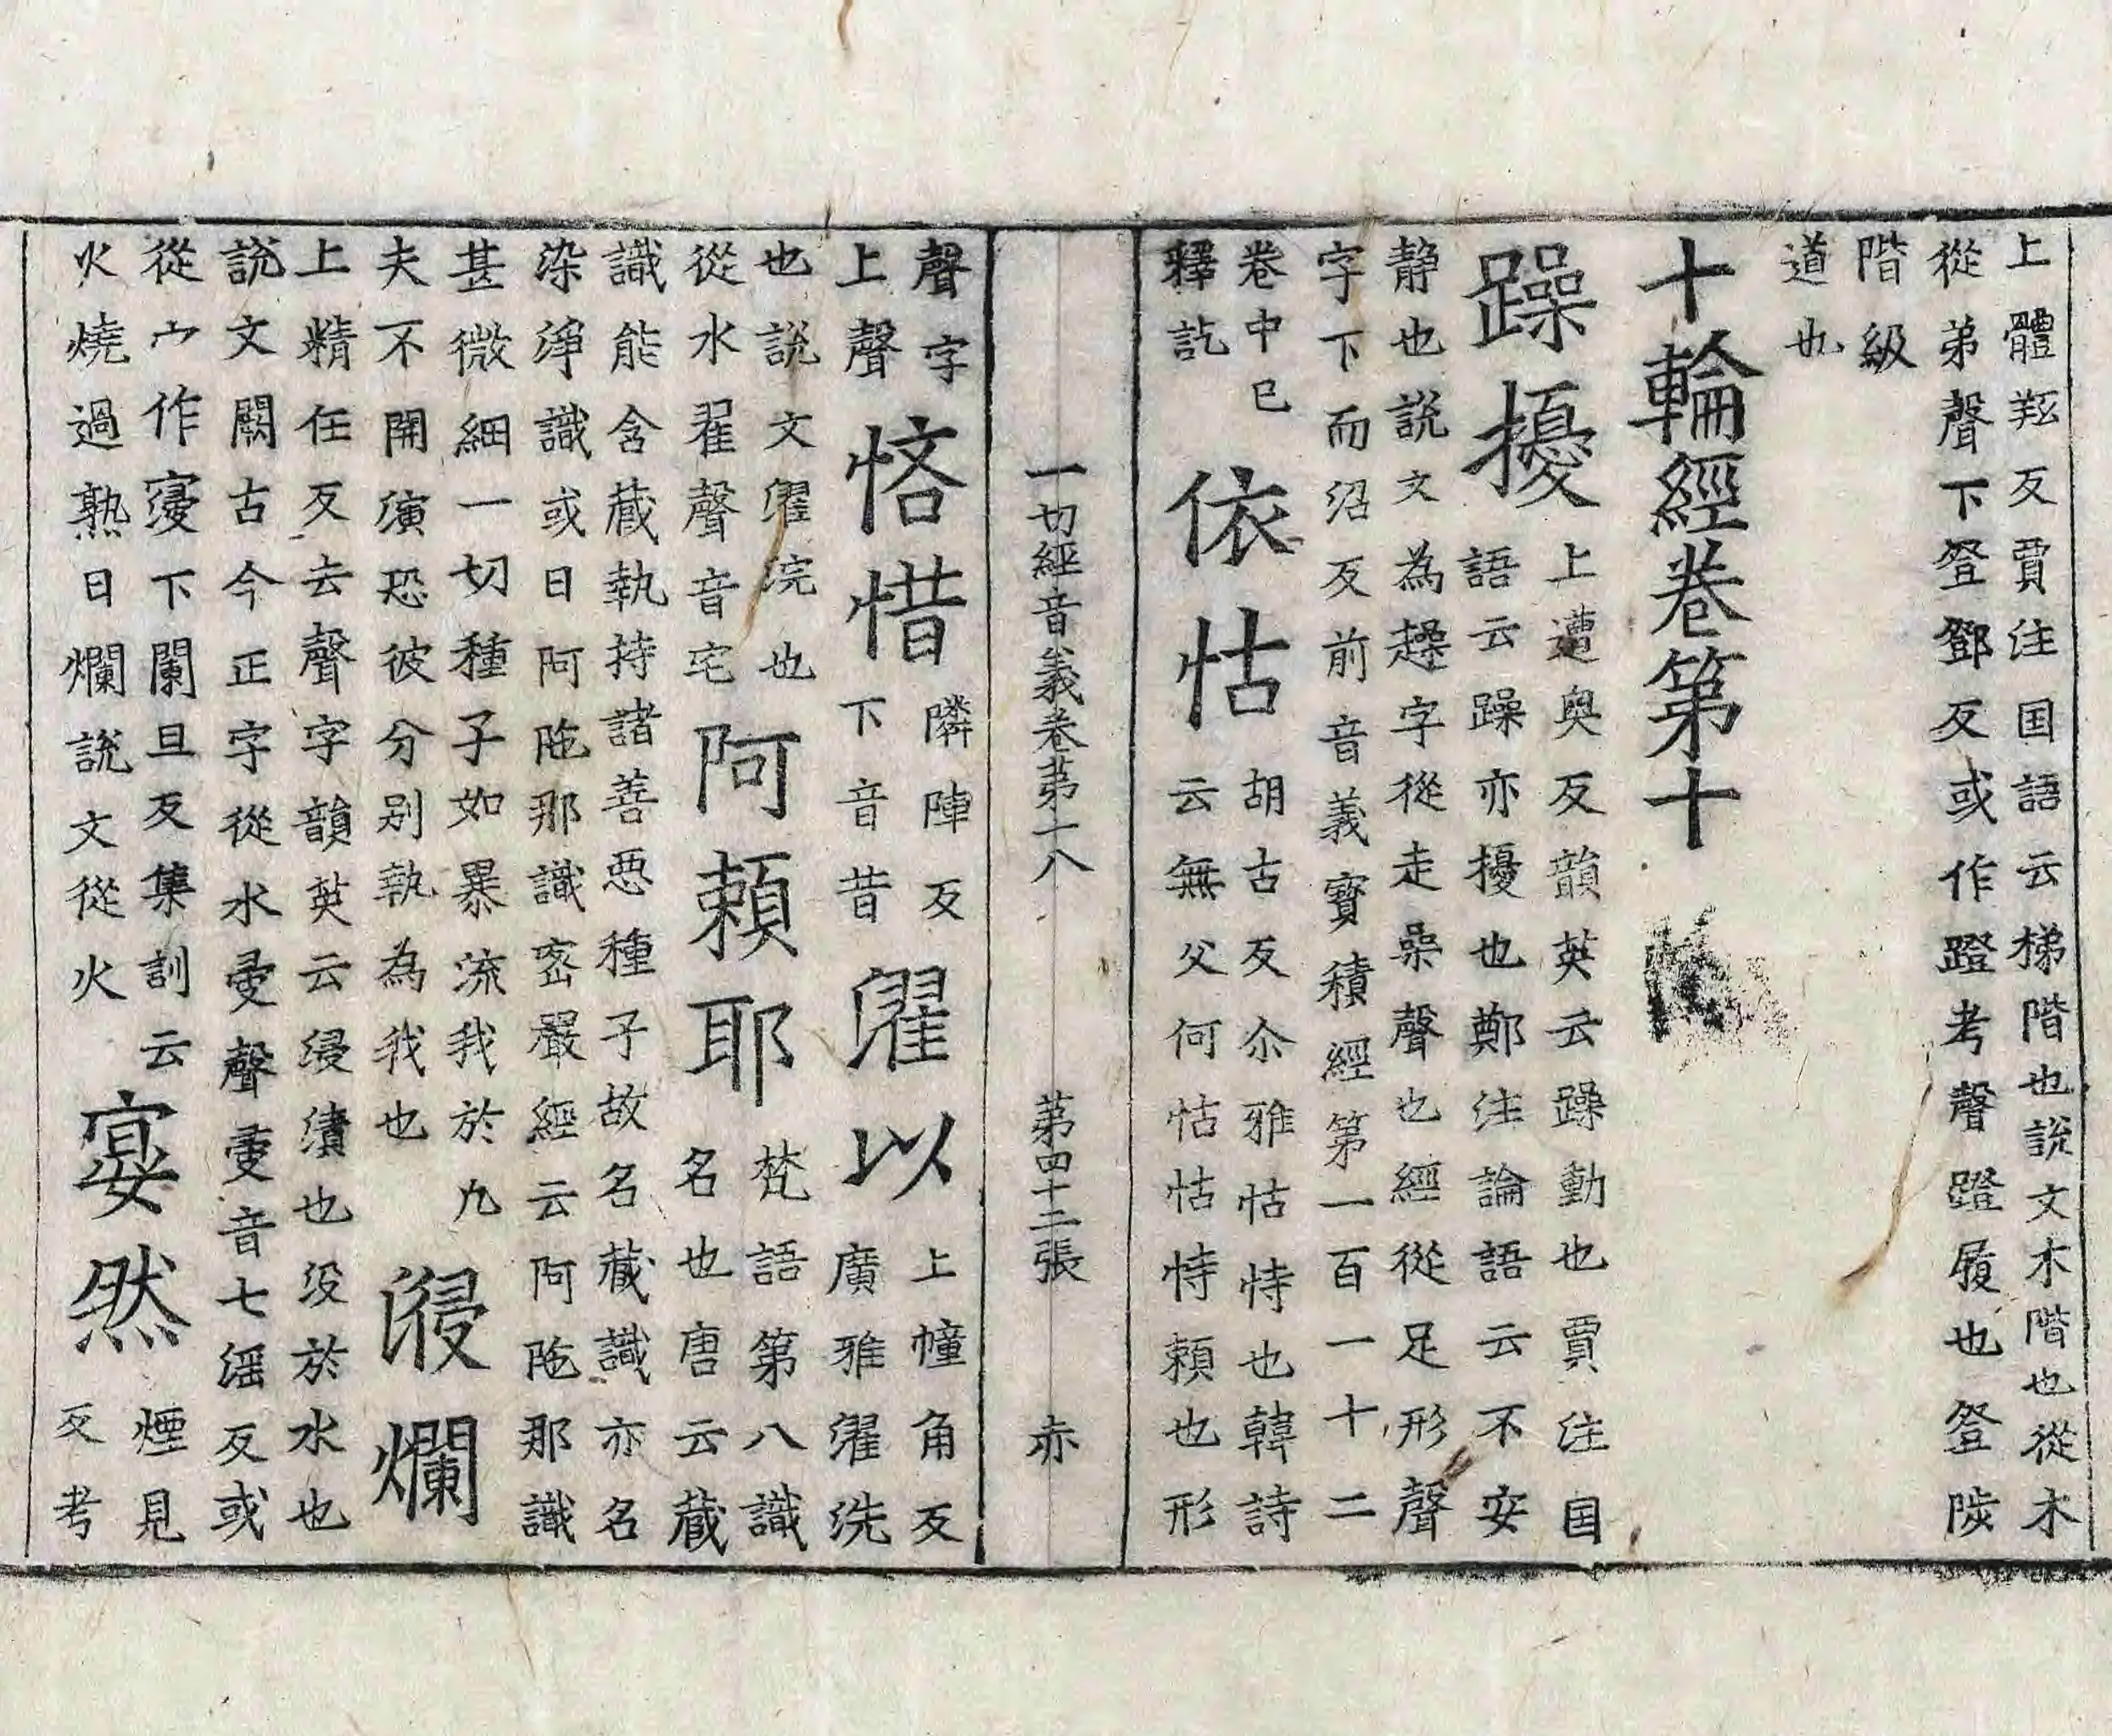 上體羝反賈注国語云梯階也說文木階也從木
從弟聲下登鄧反或作蹬考聲蹬履也登陟
階級
道也
十輪經卷第十
躁擾
上遭奥反韻英云躁動也賈注国
語云躁亦擾也鄭注論語云不安
静也說文為趮字從走喿聲也經從足形聲
字下而沼反前音義寶積經第一百一十二
卷中已
釋訖
依怙
胡古反尒雅怙恃也韓詩
云無父何怙怙恃賴也形
一切經音義卷苐十八 苐四十二張 赤
聲字
上聲
悋惜
隣陣反
下音昔
濯以
上幢角反
廣雅濯洗
也說文濯浣也
從水翟聲音宅
阿頼耶
梵語第八識
名也唐云蔵
識能含蔵執持諸善惡種子故名蔵識亦名
染淨識或曰阿陁那識密嚴經云阿陁那識
甚微細一切種子如暴流我於九
夫不開演恐彼分别執為我也
浸爛
上精任反去聲字韻英云浸漬也没於水也
說文闕古今正字從水𡩠聲𡩠音七滛反或
從宀作寖下闌旦反集訓云
火燒過熟曰爛說文從火
宴然
煙見
反考